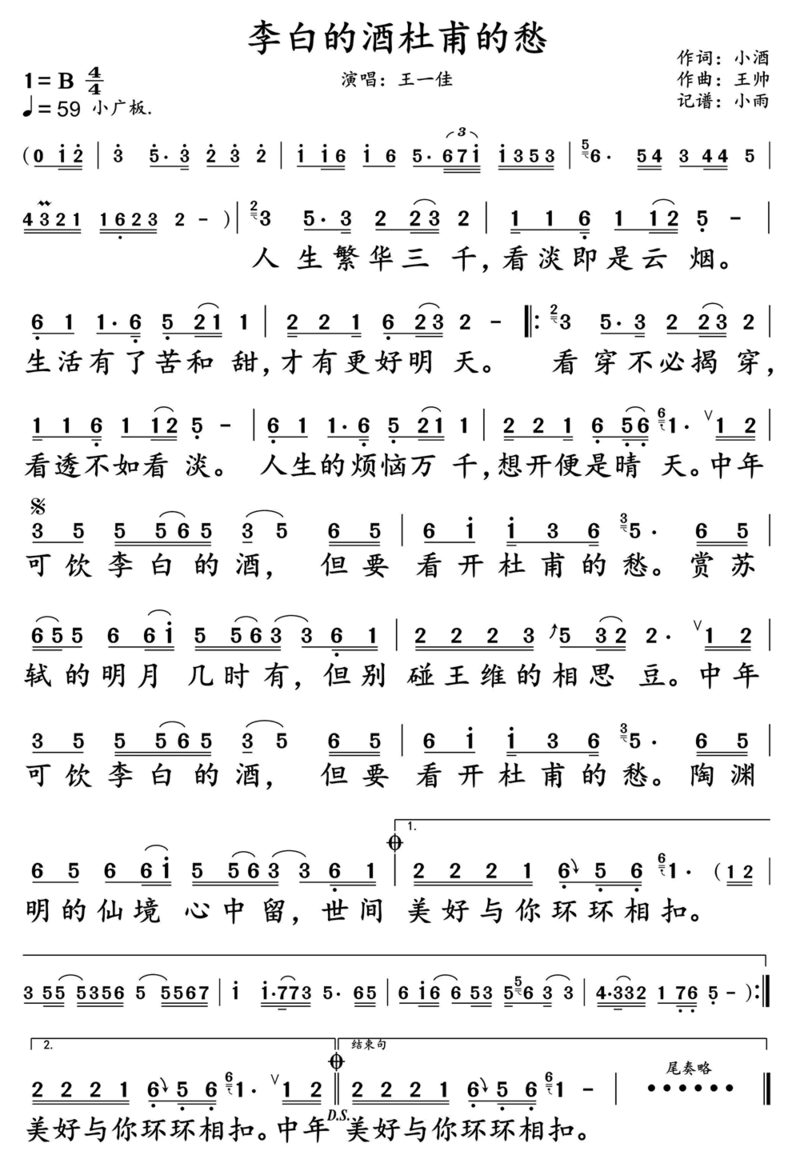 李白的酒杜甫的愁
作词：小酒
1=B 4/4
演唱：王一佳
作曲：王帅
♩=59 小广板.
记谱：小雨
(0 i 2 | 3 5· 3 2 3 2 | i i 6 i 6 5· 6 7 i i 3 5 3 | 6· 5 4 3 4 4 5 |
4 3 2 1 1 6 2 3 2 - ) | 3 5· 3 2 2 3 2 | 1 1 6 1 1 2 5 - |
人生繁华三千，看淡即是云烟。
6 1 1· 6 5 2 1 1 | 2 2 1 6 2 3 2 - ‖: 3 5· 3 2 2 3 2 |
生活有了苦和甜，才有更好明天。 看穿不必揭穿，
1 1 6 1 1 2 5 - | 6 1 1· 6 5 2 1 1 | 2 2 1 6 5 6 1· ∨ 1 2 |
看透不如看淡。 人生的烦恼万千，想开便是晴天。中年
3 5 5 5 6 5 3 5 6 5 | 6 i i 3 6 5· 6 5 |
可饮李白的酒， 但要看开杜甫的愁。赏苏
6 5 5 6 6 i 5 5 6 3 3 6 1 | 2 2 2 3 5 3 2 2· ∨ 1 2 |
轼的明月几时有，但别碰王维的相思豆。中年
3 5 5 5 6 5 3 5 6 5 | 6 i i 3 6 5· 6 5 |
可饮李白的酒， 但要看开杜甫的愁。陶渊
1.
6 5 6 6 i 5 5 6 3 3 6 1 | 2 2 2 1 6 5 6 1· (1 2 |
明的仙境心中留，世间美好与你环环相扣。
3 5 5 5 3 5 6 5 5 5 6 7 | i i· 7 7 3 5· 6 5 | 6 i 6 6 5 3 5 6 3 3 | 4· 3 3 2 1 7 6 5 - ) :‖
2. 结束句
尾奏略
2 2 2 1 6 5 6 1· ∨ 1 2 ‖ 2 2 2 1 6 5 6 1 - | • • • • • • ‖
D.S.
美好与你环环相扣。中年 美好与你环环相扣。